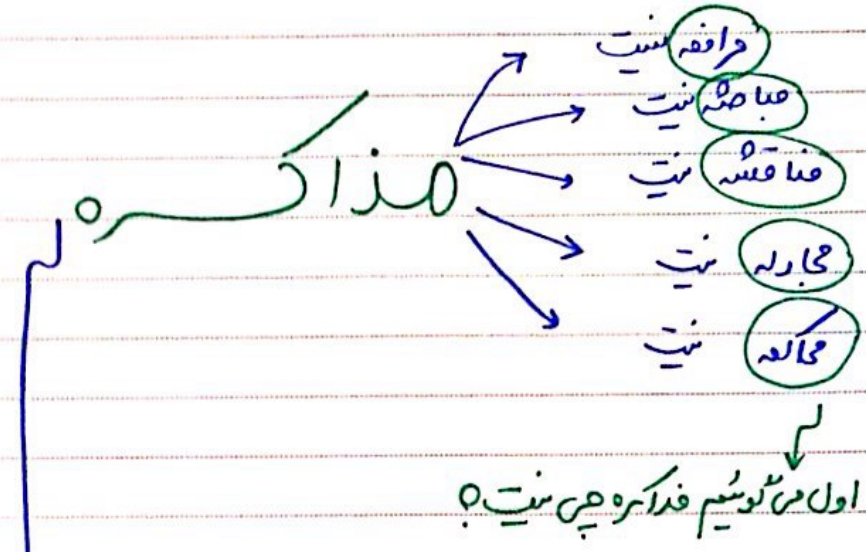 مرافعه نیست
مباحثه نیست
مناقشه نیست
مذاکره
مجادله نیست
محاکمه نیست
اول می‌گوئیم مذاکره چی نیست؟